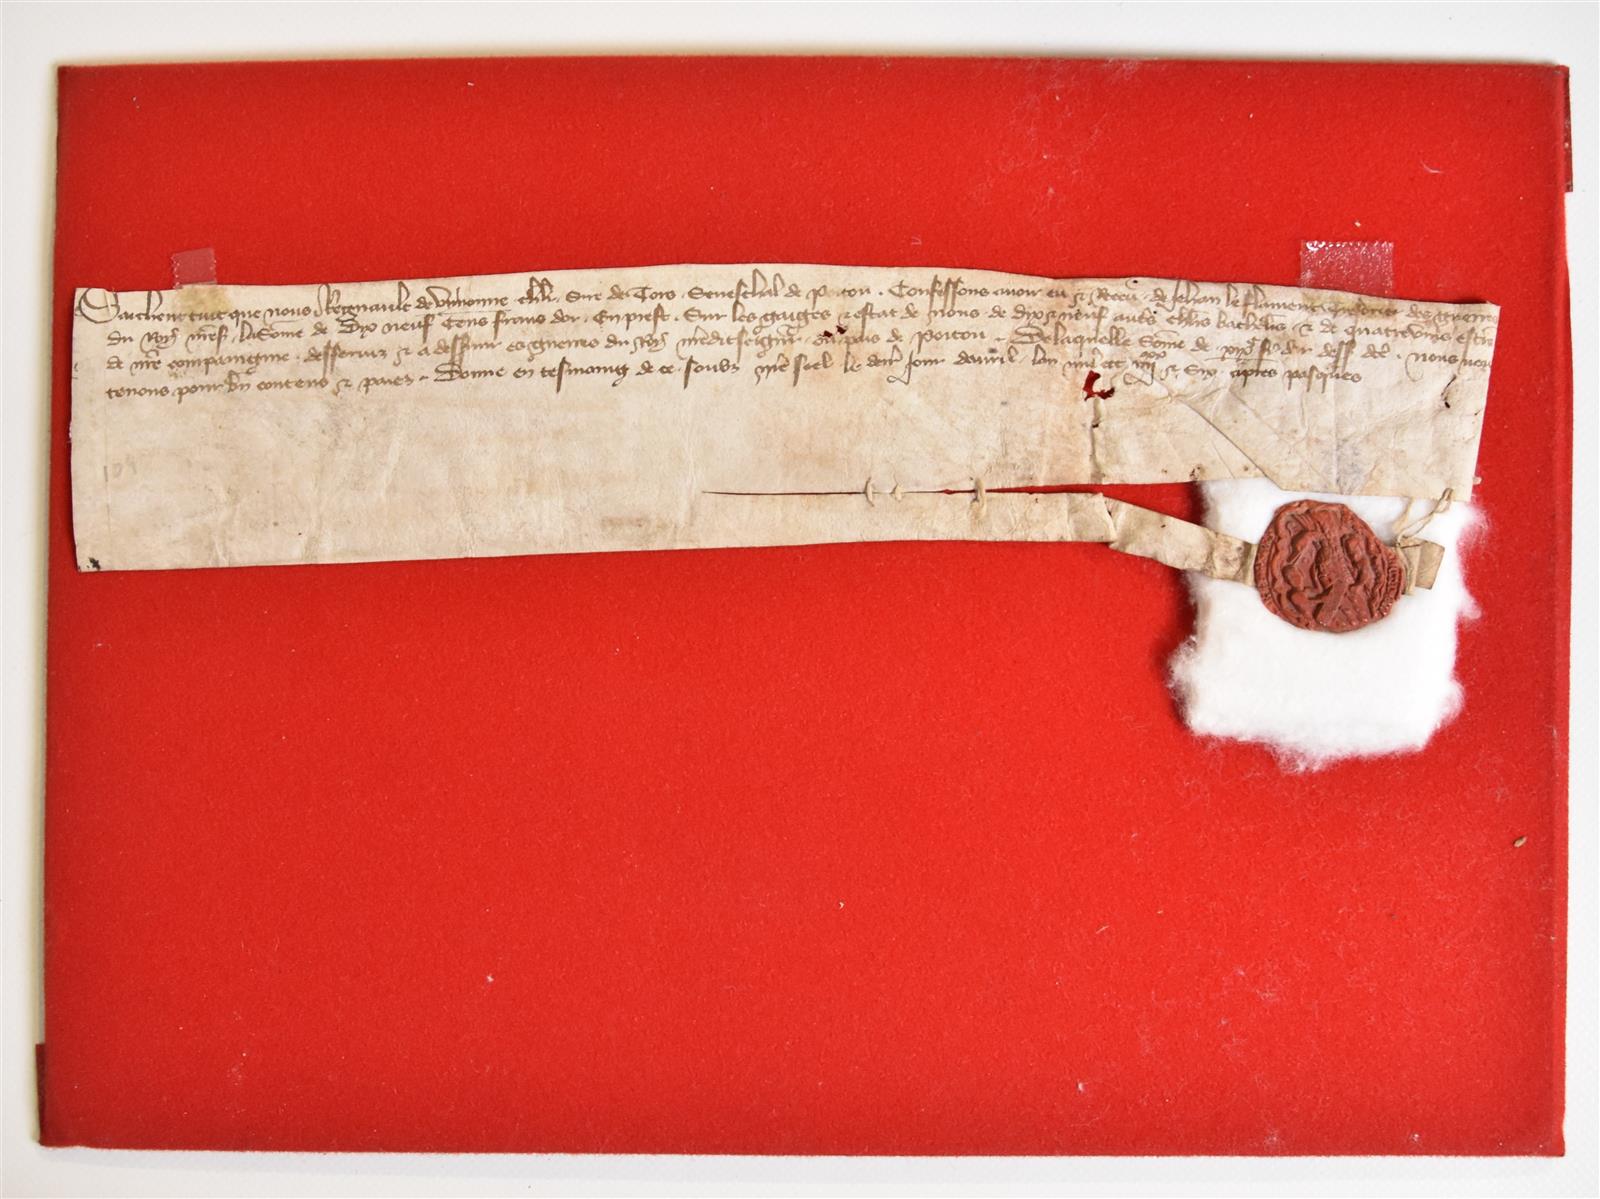 Sachent tuit que nous Regnault de Vivonne chlr Sire de Tors Seneschal de Poitou . Confessons avoir eu & Receu de Jehan le flament tresorier des guerres
du Roy nres la Some de Dix neuf Cens frans dor . En prest . Sur les gaiges & estat de nous de dix & neuf aut's chlrs bachelrs & de quatre vins escuiers
de nre compaignie desserviz & a desservir es guerres du Roy nredit seigneur ou pais de Poitou . De laquelle Some de frs dor dess dce . nous nous
tenons pour bn contens & paiez . Donne en tesmoing de ce soubz nre seel le derr Jour davril lan mil ccc iiii xx & Six apres pasques
104